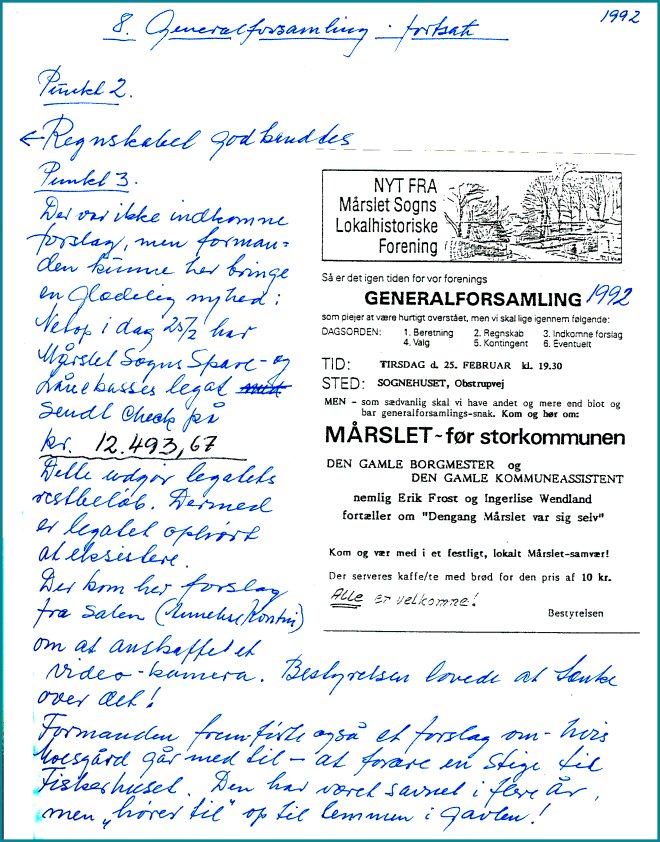 1992
8. Generalforsamling - fortsat
Punkt 2.
← Regnskabet godkendtes
Punkt 3.
Der var ikke indkomne
forslag, men forman=
den kunne her bringe
en glædelig nyhed:
Netop i dag 25/2 har
Mårslet Sogns Spare- og
Lånekasses legat med
sendt check på
kr. 12.493,67
Dette udgør legatets
restbeløb. Dermed
er legatet ophørt
at eksistere.
Der kom her forslag
fra salen (Annelise Kontni)
om at anskaffe et
video-kamera. Bestyrelsen lovede at tænke
over det!
Formanden fremførte også et forslag om - hvis
Moesgård går med til - at forære en stige til
Fiskerhuset. Den har været savnet i flere år,
men "hører til" op til lemmen i gavlen!
NYT FRA
Mårslet Sogns
Lokalhistoriske
Forening
Så er det igen tiden for vor forenings
GENERALFORSAMLING 1992
som plejer at være hurtigt overstået, men vi skal lige igennem følgende:
DAGSORDEN: 1. Beretning 2. Regnskab 3. Indkomne forslag
4. Valg 5. Kontingent 6. Eventuelt
TID: TIRSDAG d. 25. FEBRUAR kl. 19.30
STED: SOGNEHUSET, Obstrupvej
MEN - som sædvanlig skal vi have andet og mere end blot og
bar generalforsamlings-snak. Kom og hør om:
MÅRSLET - før storkommunen
DEN GAMLE BORGMESTER og
DEN GAMLE KOMMUNEASSISTENT
nemlig Erik Frost og Ingerlise Wendland
fortæller om "Dengang Mårslet var sig selv"
Kom og vær med i et festligt, lokalt Mårslet-samvær!
Der serveres kaffe/te med brød for den pris af 10 kr.
Alle er velkomne!
Bestyrelsen